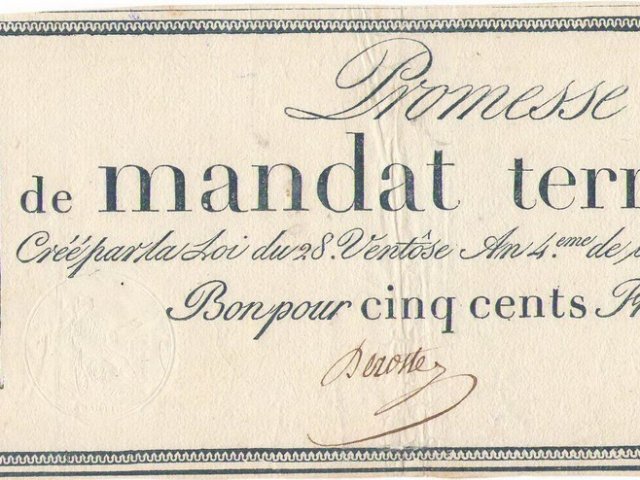 Promesse
de mandat terr
Créé par la Loi du 28. Ventôse An 4.eme de
Bon pour cinq cents F